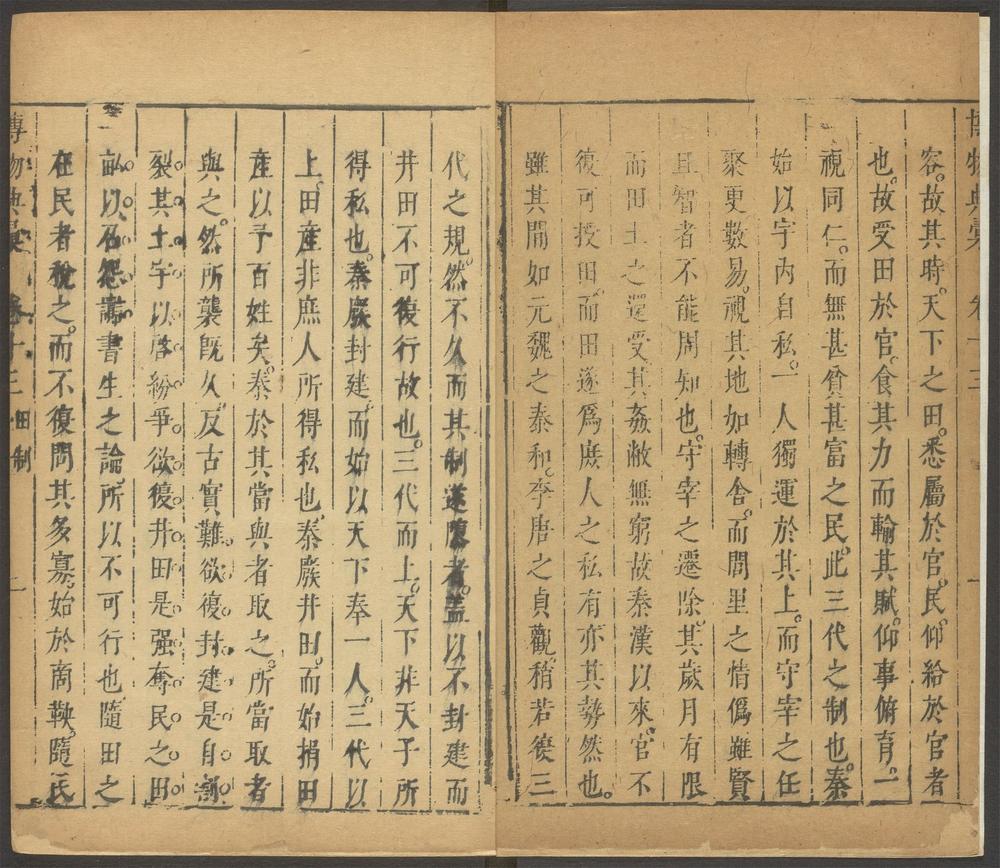 博物典彙 卷十三 一
容。故其時。天下之田。悉屬於官。民仰給於官者
也。故受田於官。食其力而輸其賦。仰事俯育。一
視同仁。而無甚貧甚富之民。此三代之制也。秦
始以宇內自私。一人獨運於其上。而守宰之任
聚更數易。視其地如轉舍。而閭里之情僞雖賢
且智者不能周知也。守宰之遷除。其歲月有限
而田土之還受其姦敝無窮故秦漢以來。官不
復可授田。而田遂爲庶人之私有亦其勢然也。
雖其間如元魏之泰和。李唐之貞觀。稍若復三
代之規。然不久而其制遂隳者。蓋以不封建而
井田不可復行故也。三代而上。天下非天子所
得私也。秦廢封建。而始以天下奉一人。三代以
上。田產非庶人所得私也。秦廢井田。而始捐田
產以予百姓矣。秦於其當與者取之。所當取者
與之。然所襲旣久。反古實難。欲復封建。是自割
裂其土宇。以啓紛爭。欲復井田。是强奪民之田
畝。以召怨讟。書生之論。所以不可行也。隨田之
在民者稅之。而不復問其多寡。始於商鞅。隨民
博物典彙 卷十三 田制 一